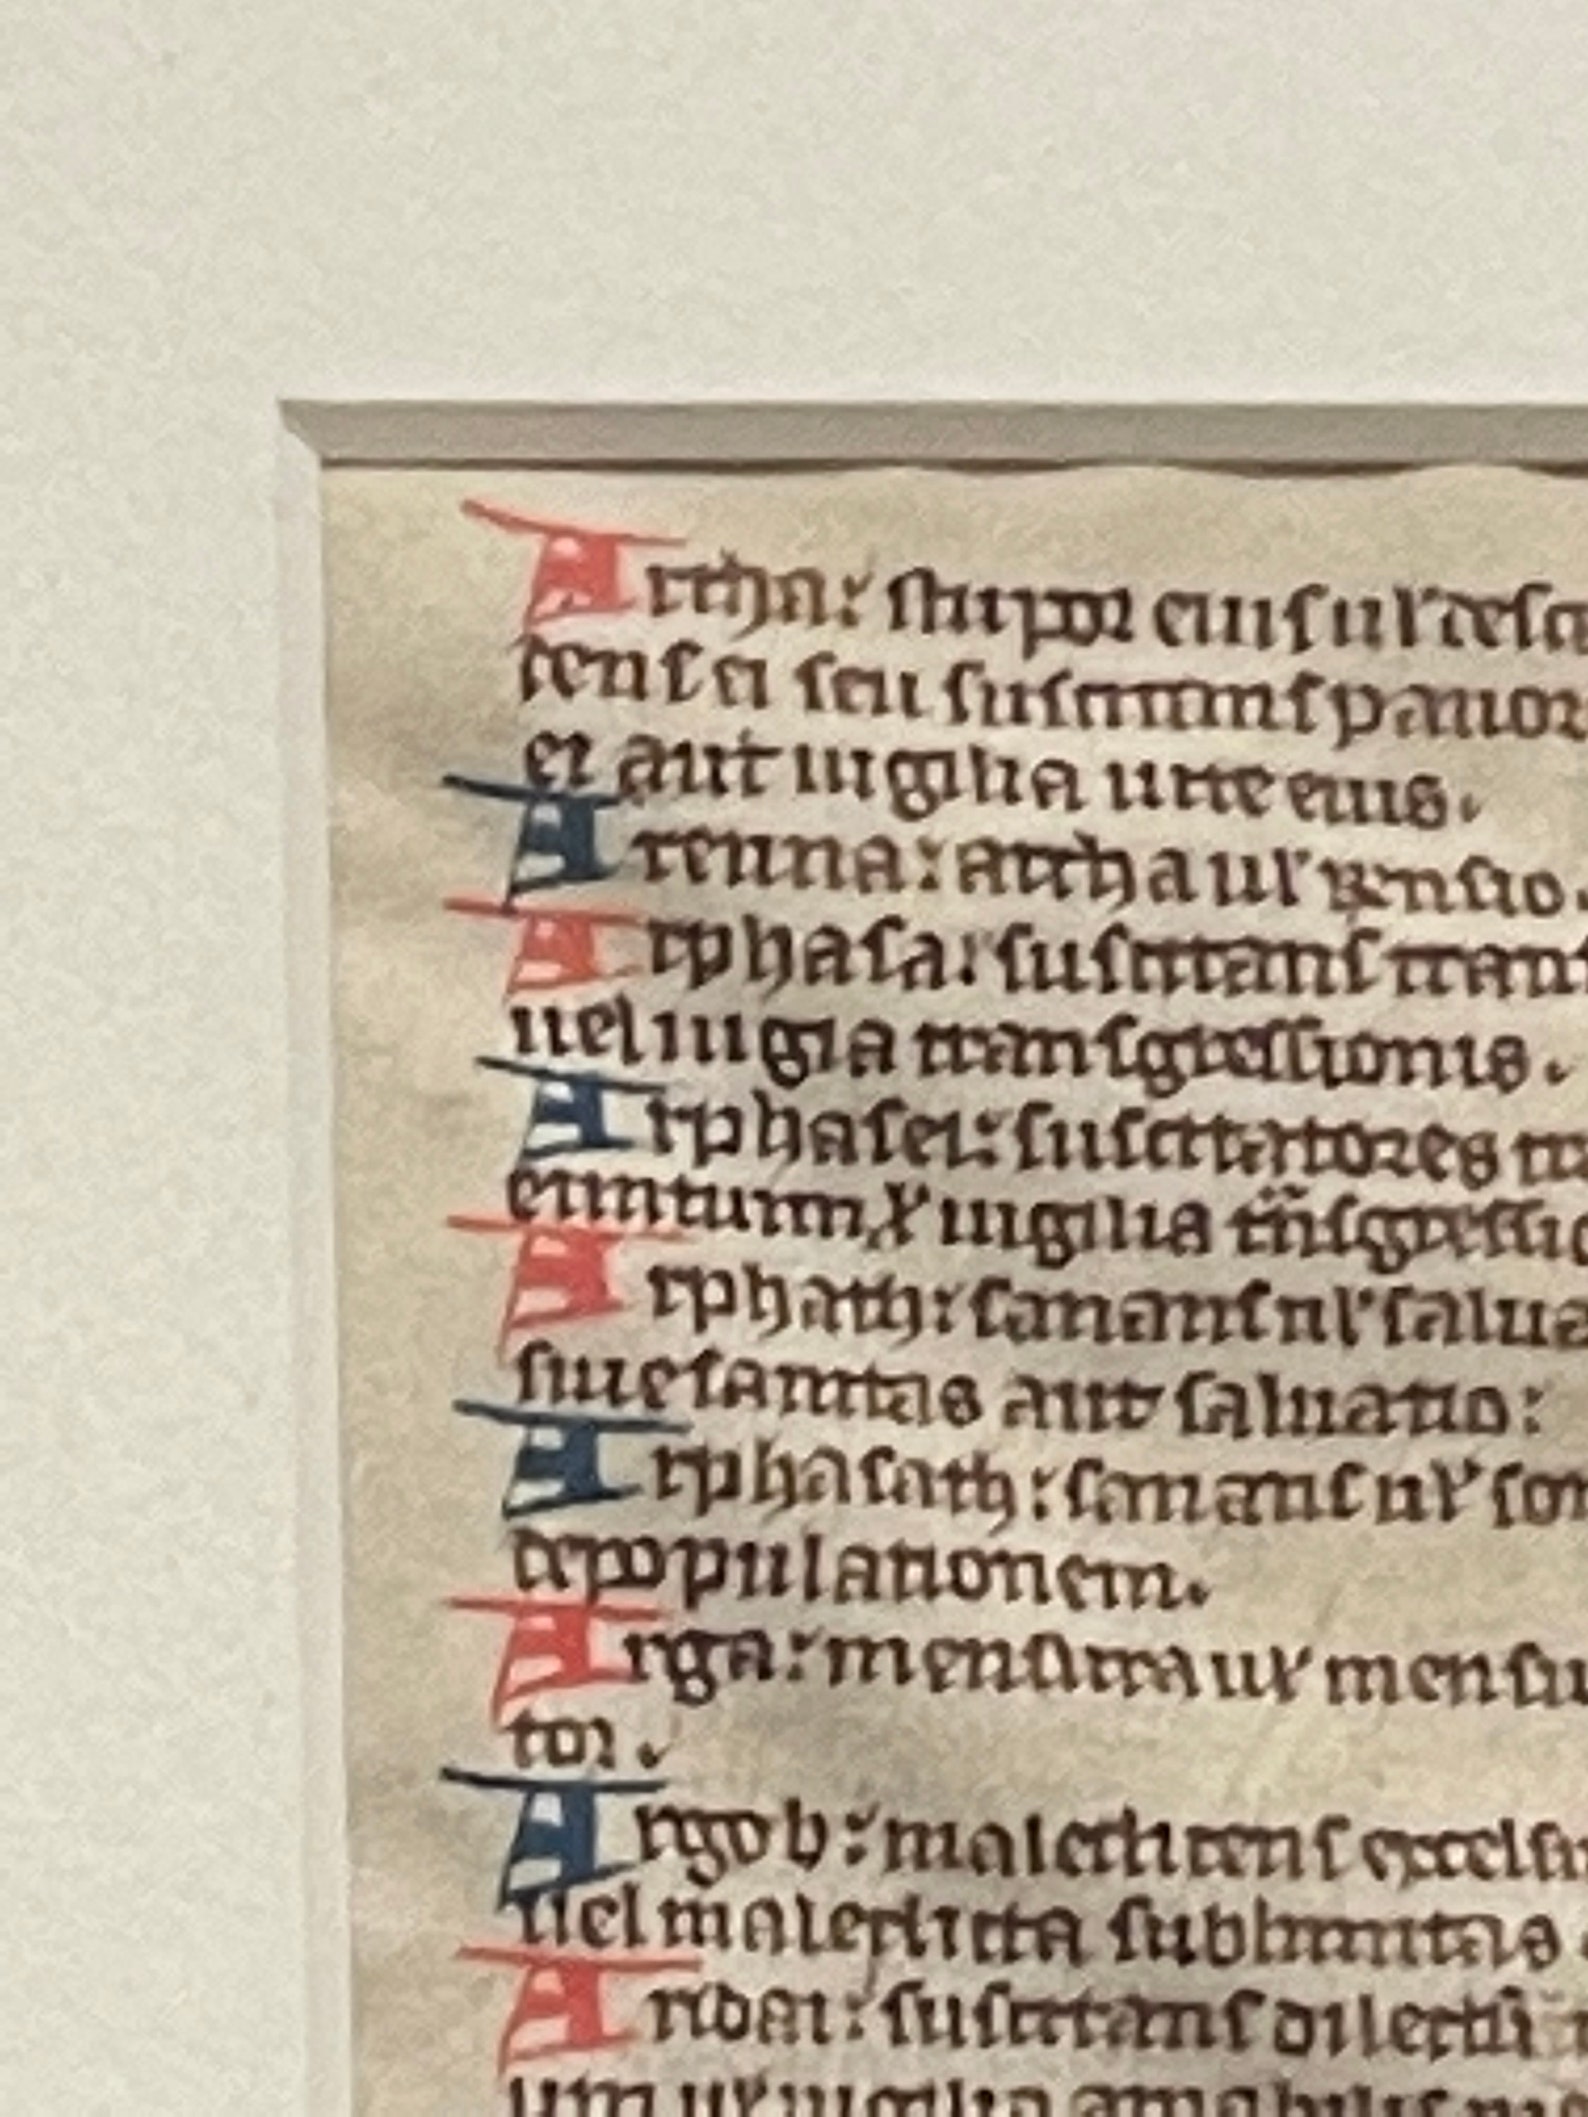 Artha: stupor eius ul' desce
dens ei seu suscitans pauor
ei aut uigilia uite eius.
Arenna: archa ul' tensio.
Arphasa: suscitans trans
uel uigia transgressionis.
Arphasei: suscitatores tr
euntium ul' uigilia trͣnsgressio
Arphath: sanans ul' salua
siue sanitas aut saluatio:
Arphasath: sanans ul' son
depopulationem.
Arga: mensura ul' mensu
tor.
Argob: maledicens excelsu
uel maledicta sublimitas
Aridai: suscitans dilectū
um ul' uigilia amabilis